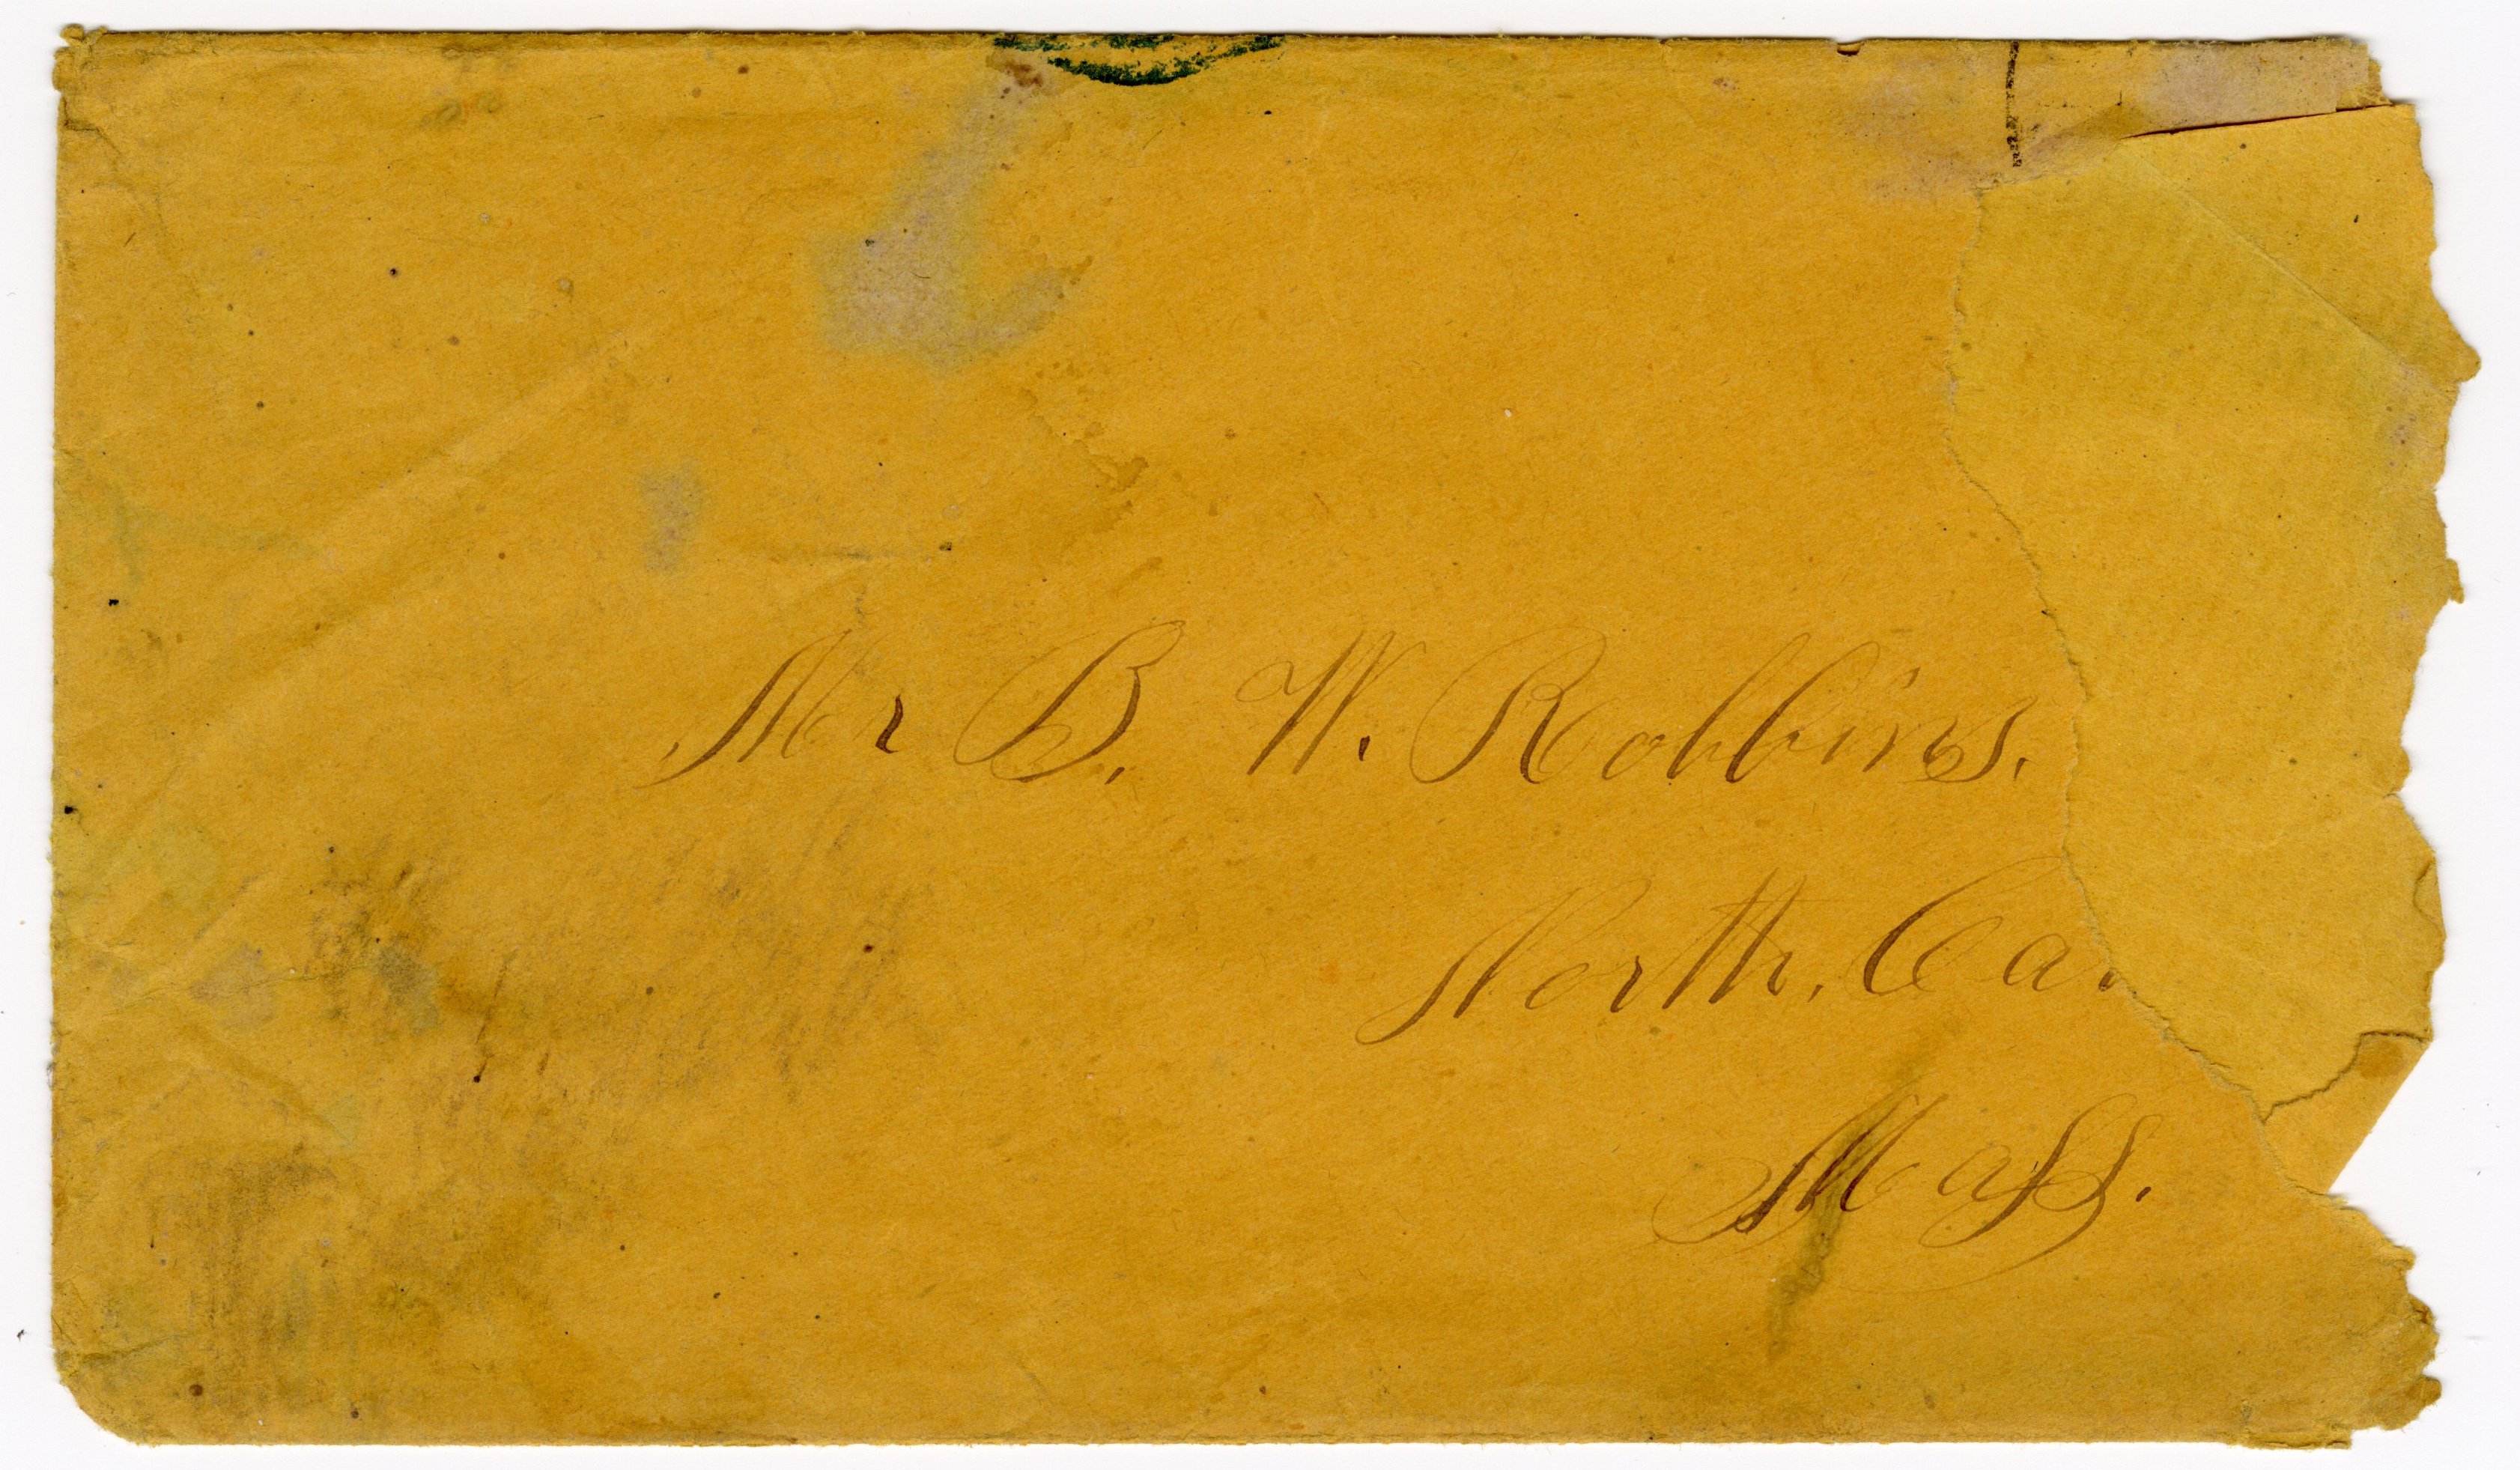 Mr B. W. Robbins.
North, Ca
Mass.